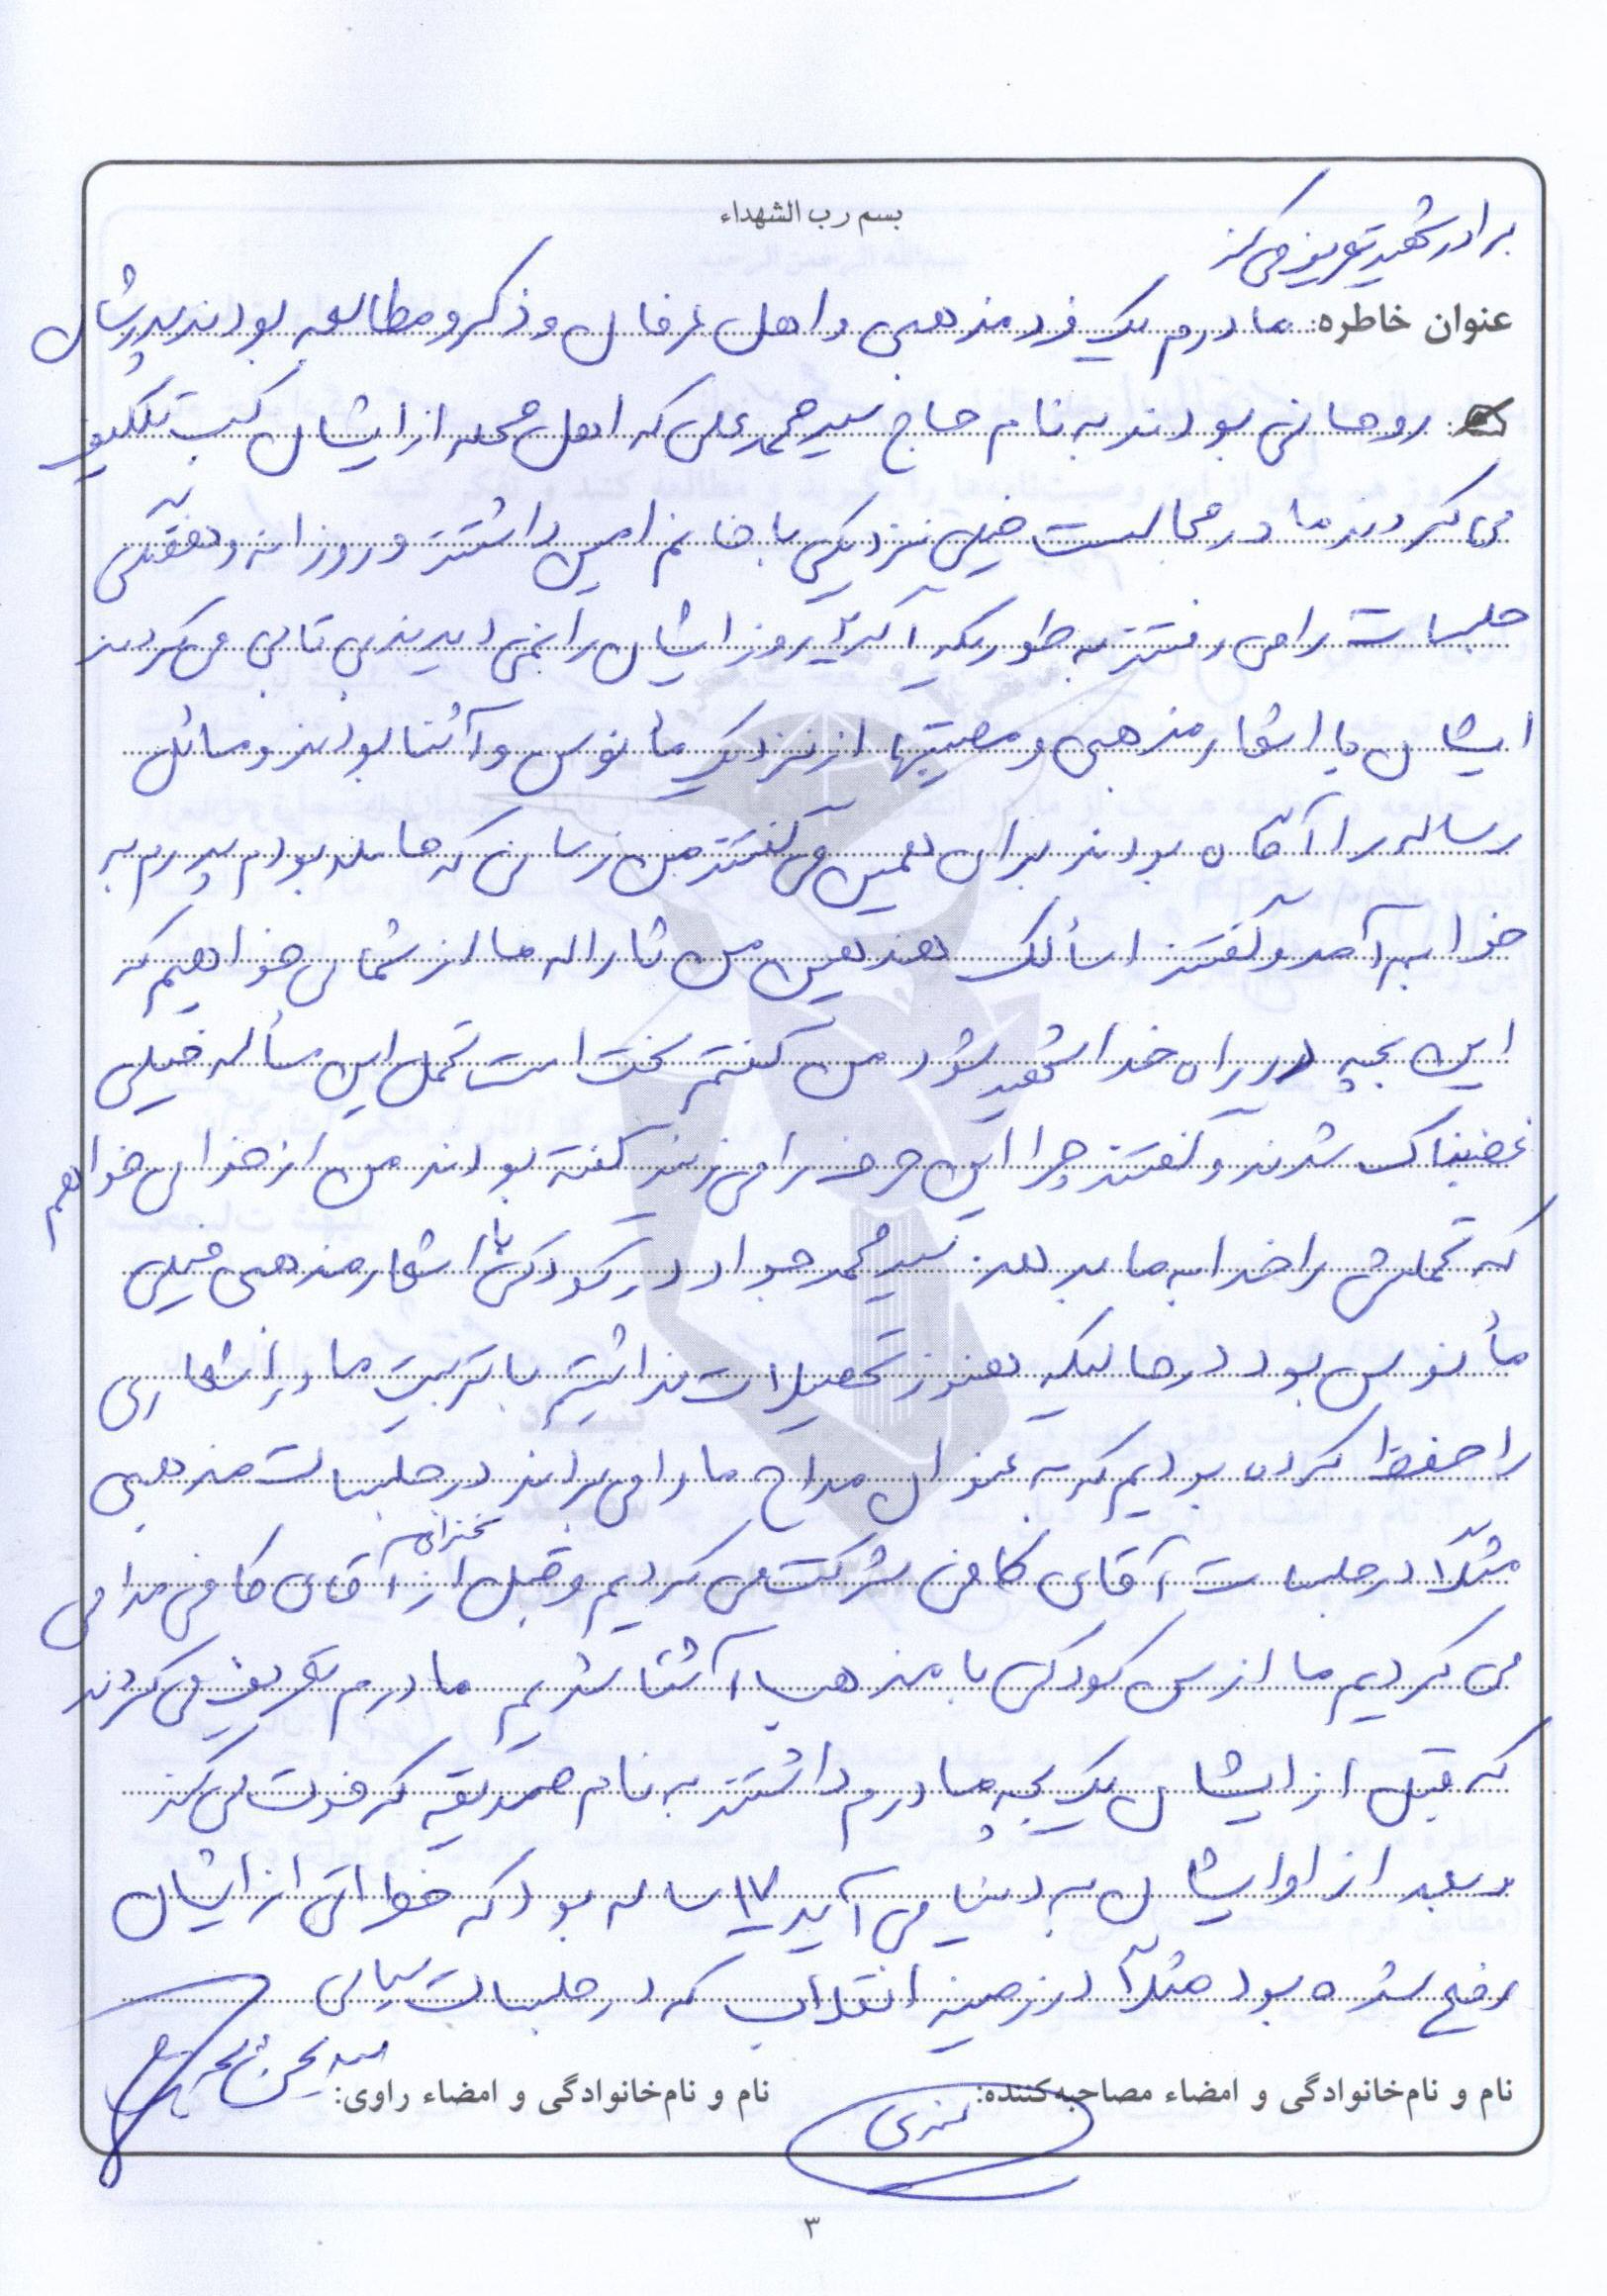 بسم رب الشهداء
برادر شهید تعریف می‌کند
عنوان خاطره: مادرم یک فرد مذهبی و اهل عرفان و ذکر و مطالعه بودند پدرشان
روحانی بودند به نام حاج سید محمد علی که اهل محله از ایشان کسب تکلیف
می‌کردند مادر مجالست خیلی نزدیکی با خانم امین داشتند و روزانه و هفتگی
جلسات را می‌رفتند به طوریکه اگر یک روز ایشان را نمی‌دیدند بی تابی می‌کردند
ایشان با اشعار مذهبی و مصیبتها از نزدیک مأنوس و آشنا بودند و مسائل
رساله را آگاه بودند برای همین می‌گفتند من زمانی که حامله بودم پدرم به
خوابم آمد و گفتند اسألک من ثارالله ما از شما می‌خواهیم که
این بچه در راه خدا شهید شود من گفتم سخت است تحمل این مسأله خیلی
غضبناک شدند و گفتند چرا این حرف را می‌زنید گفته بودند من از خدا می‌خواهم
که تحملش را خدا به ما بدهد. سید محمد جواد در کودکی با اشعار مذهبی خیلی
مأنوس بود در حالیکه هنوز تحصیلات نداشتیم با تربیت مادر اشعاری
را حفظ کرده بودیم که به عنوان مداح ما را می‌بردند در جلسات مذهبی
مثلاً در جلسات آقای کافی شرکت می‌کردیم و قبل از سخنرانی آقای کافی مداحی
می‌کردیم ما از سن کودکی با مذهب آشنا شدیم مادرم تعریف می‌کردند
که قبل از ایشان یک بچه مادرم داشتند به نام صدیقه که فوت می‌کند
و بعد از او ایشان به دنیا می‌آید ۱۷ ساله بود که خطراتی از ایشان
رفع شده بود مثلاً در زمینه انقلاب که در جلسات سیاسی
نام و نام‌خانوادگی و امضاء مصاحبه‌کننده:
نام و نام‌خانوادگی و امضاء راوی:
۳